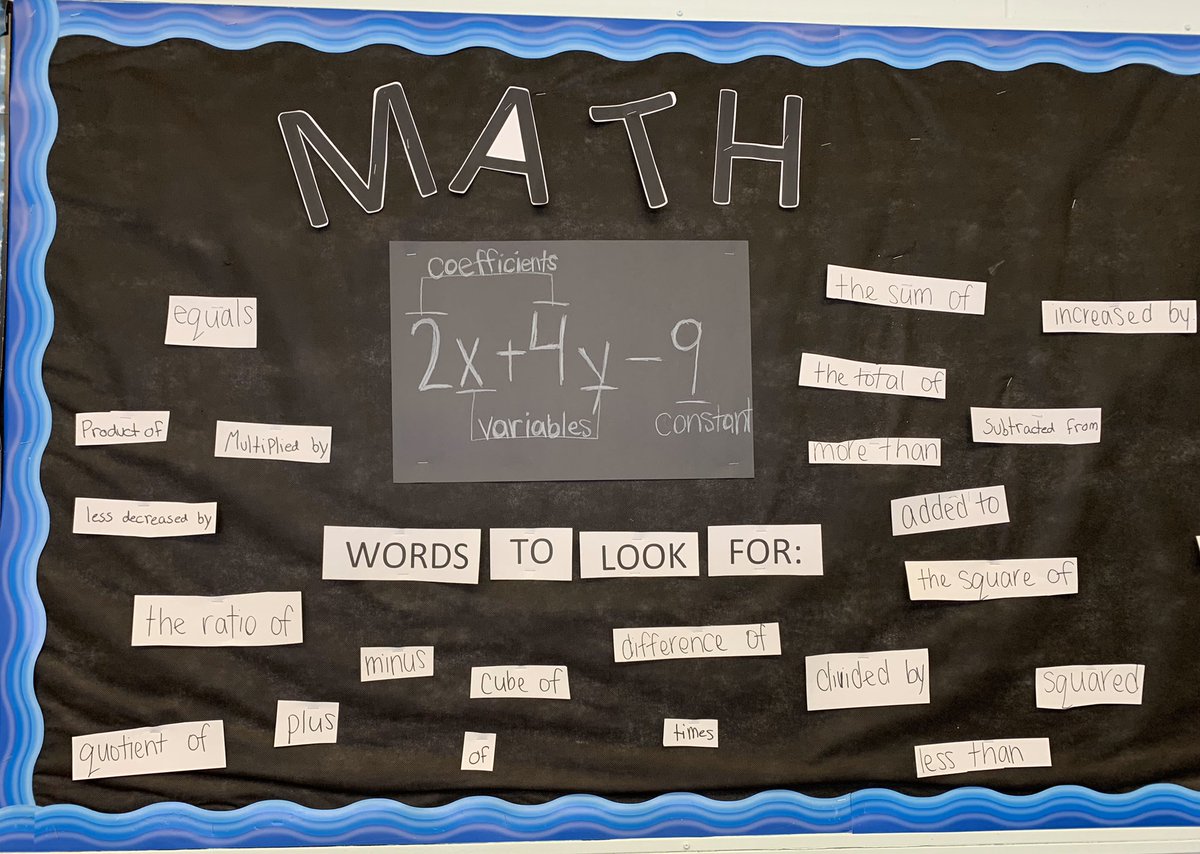 MATH
coefficients
2x+4y-9
variables
constant
equals
the sum of
increased by
the total of
Product of
Multiplied by
Subtracted from
more than
less decreased by
added to
WORDS TO LOOK FOR:
the square of
the ratio of
difference of
minus
cube of
divided by
squared
quotient of
plus
of
times
less than